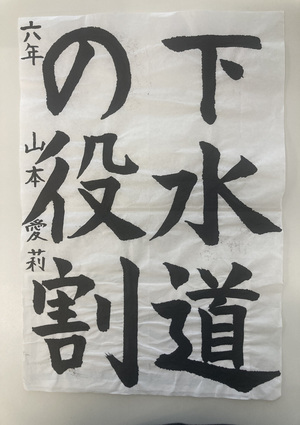 下水道
の役割
六年 山本愛莉